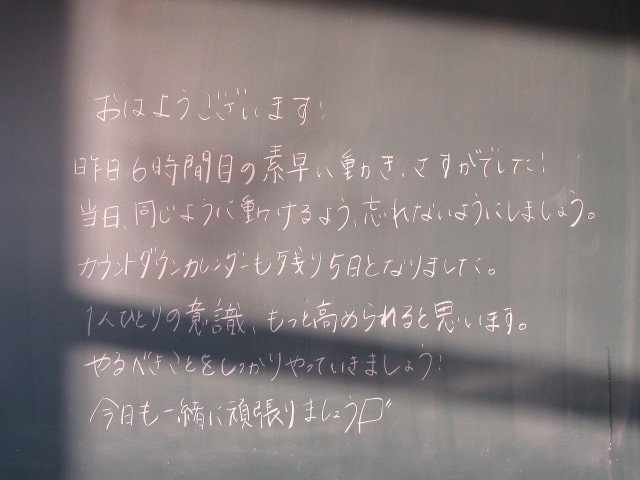 おはようございます!
昨日6時間目の素早い動き、さすがでした!
当日、同じように動けるよう、忘れないようにしましょう。
カウントダウンカレンダーも残り5日となりました。
1人ひとりの意識、もっと高められると思います。
やるべきことをしっかりやっていきましょう!
今日も一緒に頑張りましょう